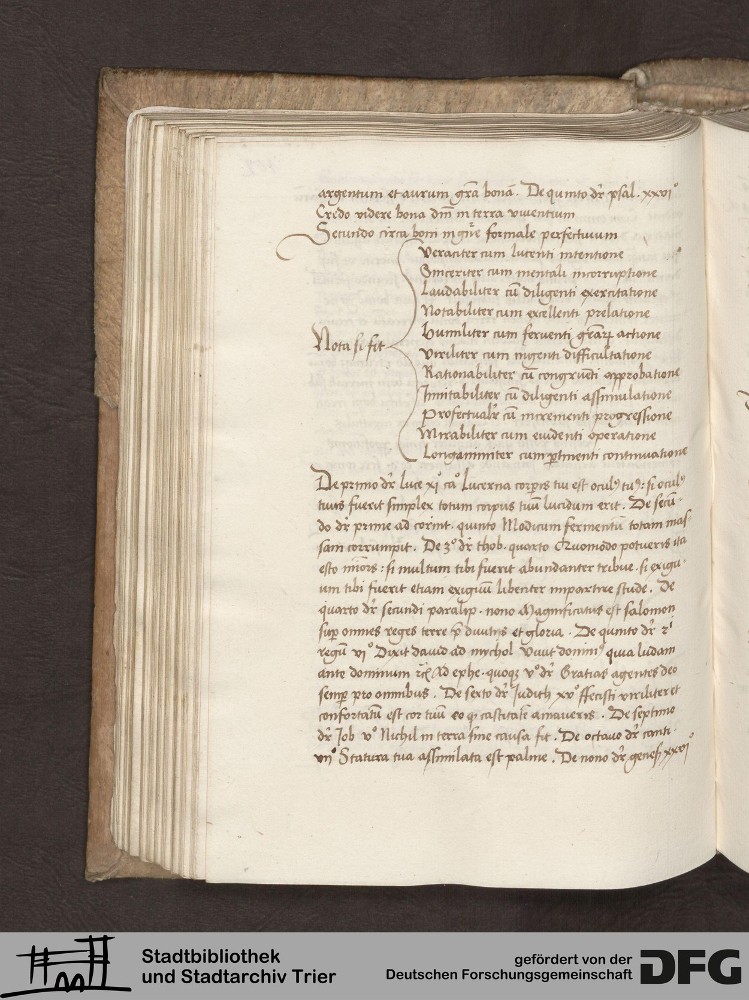 argentum et aurum grā bona. De quinto dr̄ psal. xxvi°
Credo videre bona dn̄i in terra viventium
Secundo circa boni in gn̄e formale perfectivum
veraciter cum lucenti intentione
Sinceriter cum mentali incorruptione
Laudabiliter cū diligenti exercitatione
Notabiliter cum excellenti prelatione
humiliter cum ferventi grāꝝ actione
Nota si fit
viriliter cum ingenti difficultatione
Rationabiliter cū congruēti approbatione
Imitabiliter cū diligenti assimulatione
profectualr̄ cū incrementi progressione
Mirabiliter cum evidenti operatione
Longanimiter cum ꝑtinenti continuatione
De primo dr̄ luce xi° ca° Lucerna corpris tui est oculꝰ tuꝰ: si oculꝰ
tuus fuerit simplex totum corpus tuū lucidum erit. De secū-
do dr̄ prime ad corint. quinto Modicum fermentū totam mas-
sam corrumpit. De 3° dr̄ thob. quarto Quomodo potueris ita
esto : si multum tibi fuerit abundanter tribue. si exigu-
um tibi fuerit etiam exiguū libenter impartire stude. De
quarto dr̄ secundi paralip. nono Magnificatus est salomon
suꝑ omnes reges terre p̄ divitiis et gloria. De quinto dr̄ 2i
regū vi° Dixit david ad mychol Vivit dominꝰ quia ludam
ante dominum rc̄. Ad ephe. quoqꝫ v° dr̄ Gratias agentes deo
semꝑ pro omnibus. De sexto dr̄ Judith xv° ffecisti viriliter et
confortatū est cor tuū eo qꝫ castitatē amaveris. De septimo
dr̄ Job v° Nichil in terra sine causa fit. De octavo dr̄ canti-
vii° Statura tua assimilata est palme. De nono dr̄ genes xxvi°
Stadtbibliothek
und Stadtarchiv Trier
gefördert von der
Deutschen Forschungsgemeinschaft
DFG